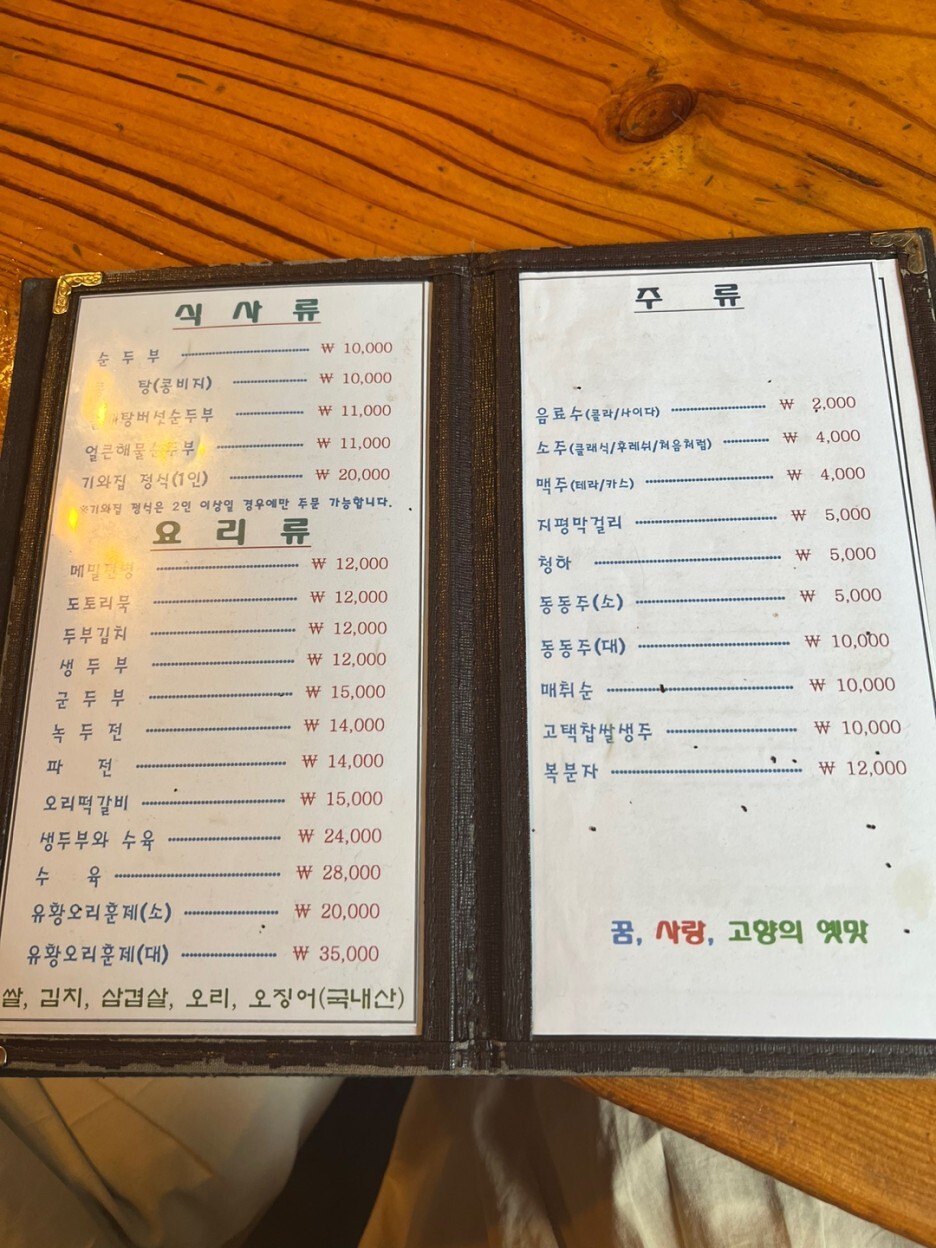 식 사 류
순 두 부 ₩ 10,000
탕(콩비지) ₩ 10,000
₩ 11,000
얼큰해물순두부 ₩ 11,000
기와집 정식(1인) ₩ 20,000
※기와집 정식은 2인 이상일 경우에만 주문 가능합니다.
요 리 류
₩ 12,000
도토리묵 ₩ 12,000
두부김치 ₩ 12,000
생 두 부 ₩ 12,000
군 두 부 ₩ 15,000
녹 두 전 ₩ 14,000
파 전 ₩ 14,000
오리떡갈비 ₩ 15,000
생두부와 수육 ₩ 24,000
수 육 ₩ 28,000
유황오리훈제(소) ₩ 20,000
유황오리훈제(대) ₩ 35,000
쌀, 김치, 삼겹살, 오리, 오징어(국내산)
주 류
음료수(콜라/사이다) ₩ 2,000
소주(클래식/후레쉬/처음처럼) ₩ 4,000
맥주(테라/카스) ₩ 4,000
지평막걸리 ₩ 5,000
청하 ₩ 5,000
동동주(소) ₩ 5,000
동동주(대) ₩ 10,000
매취순 ₩ 10,000
고택찹쌀생주 ₩ 10,000
복분자 ₩ 12,000
꿈, 사랑, 고향의 옛맛